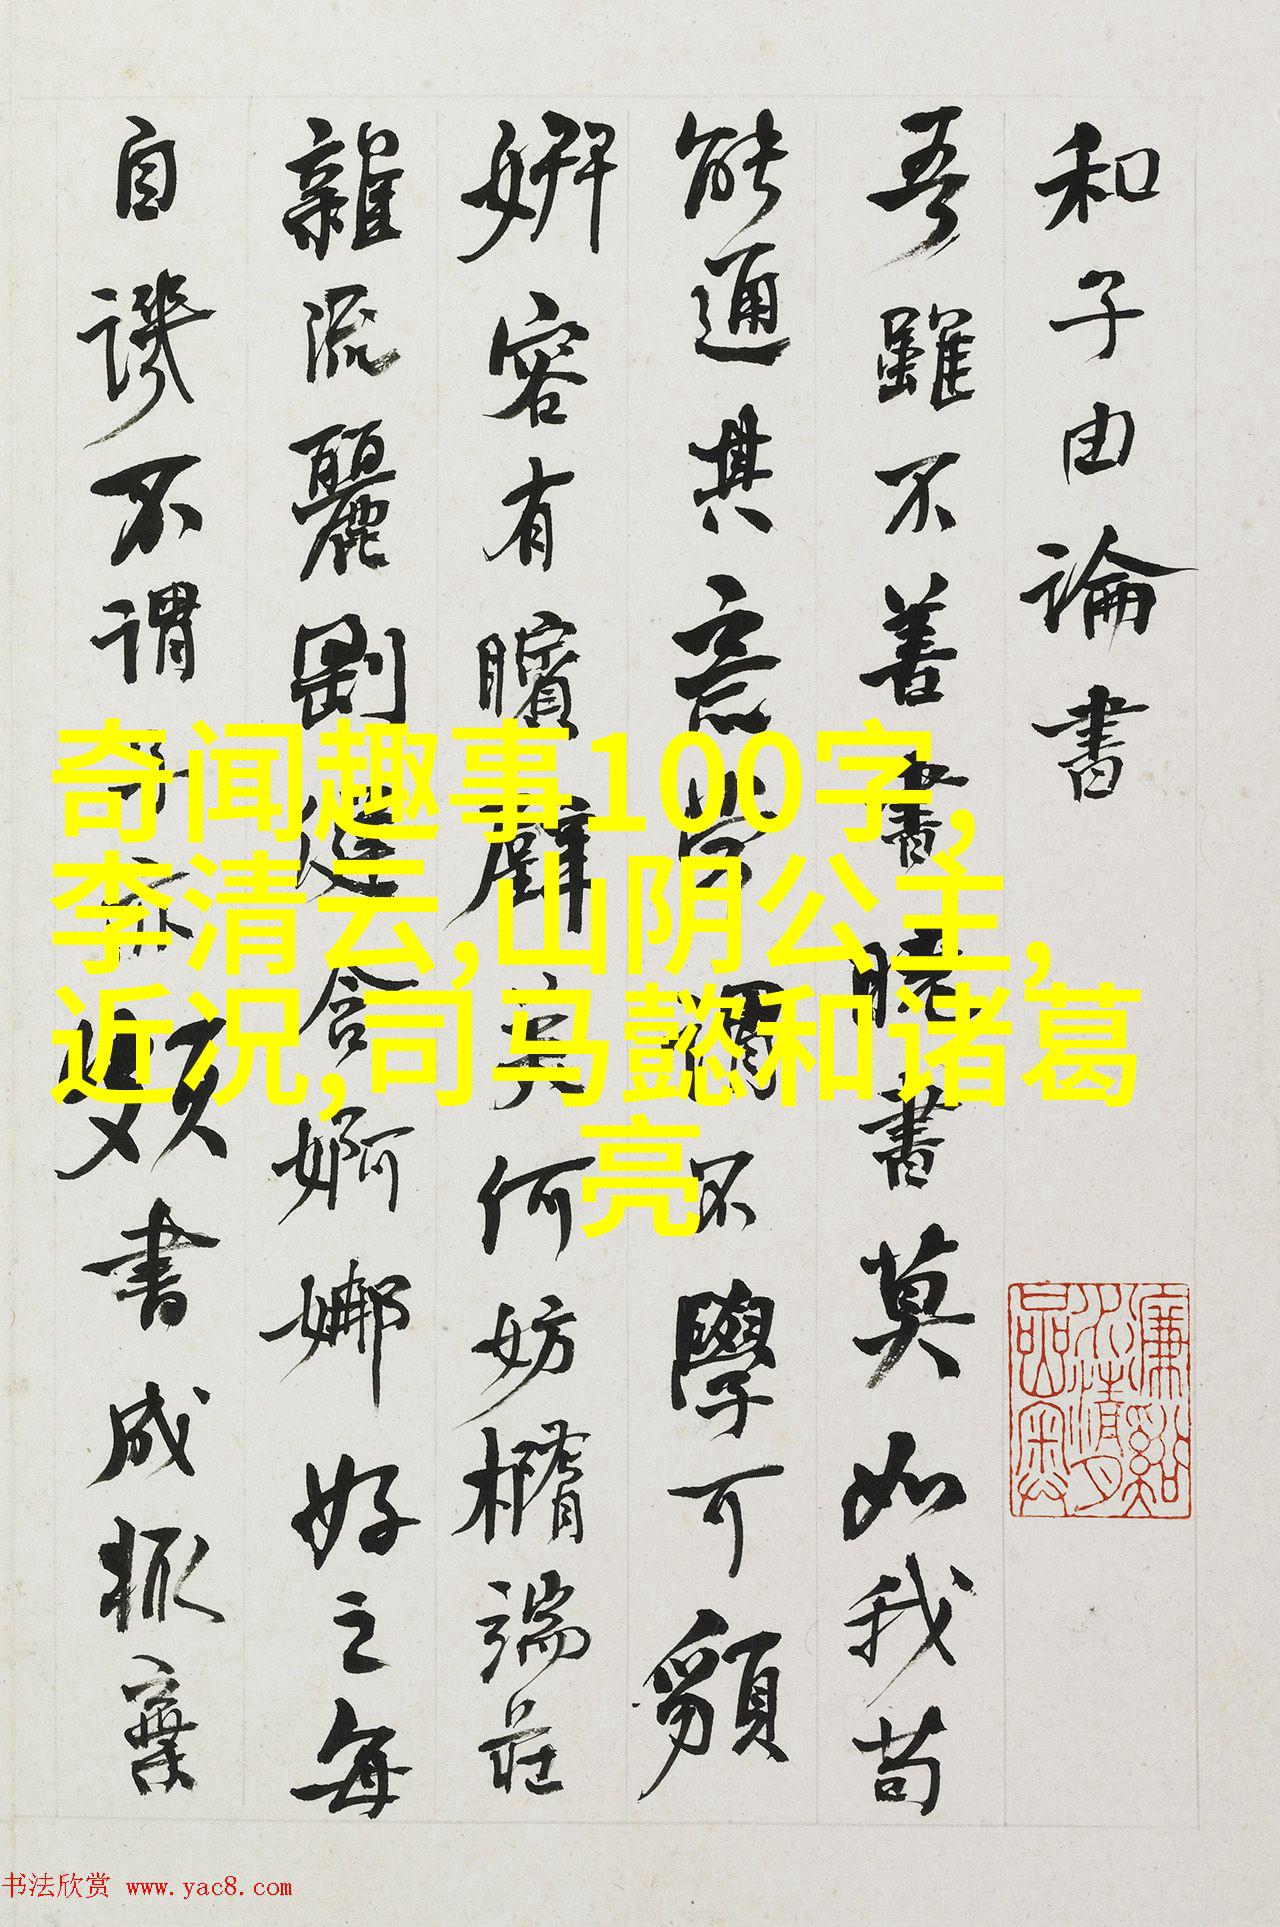 和子由論書
吾雖不善書曉書莫如我苟
能通其意常謂不學可䫉
妍容有矉璧美何妨橢端莊
雜流麗剛健含婀娜好之每
自譏不謂子亦頗書成輒棄
奇闻趣事100字,
李清云,山阴公主,
近况,司马懿和诸葛
亮
书法欣赏 www.yac8.com